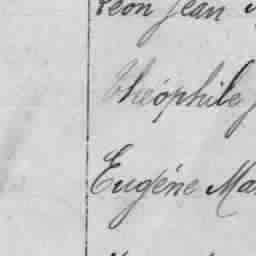 Léon Jean
Théophile
Eugène Ma